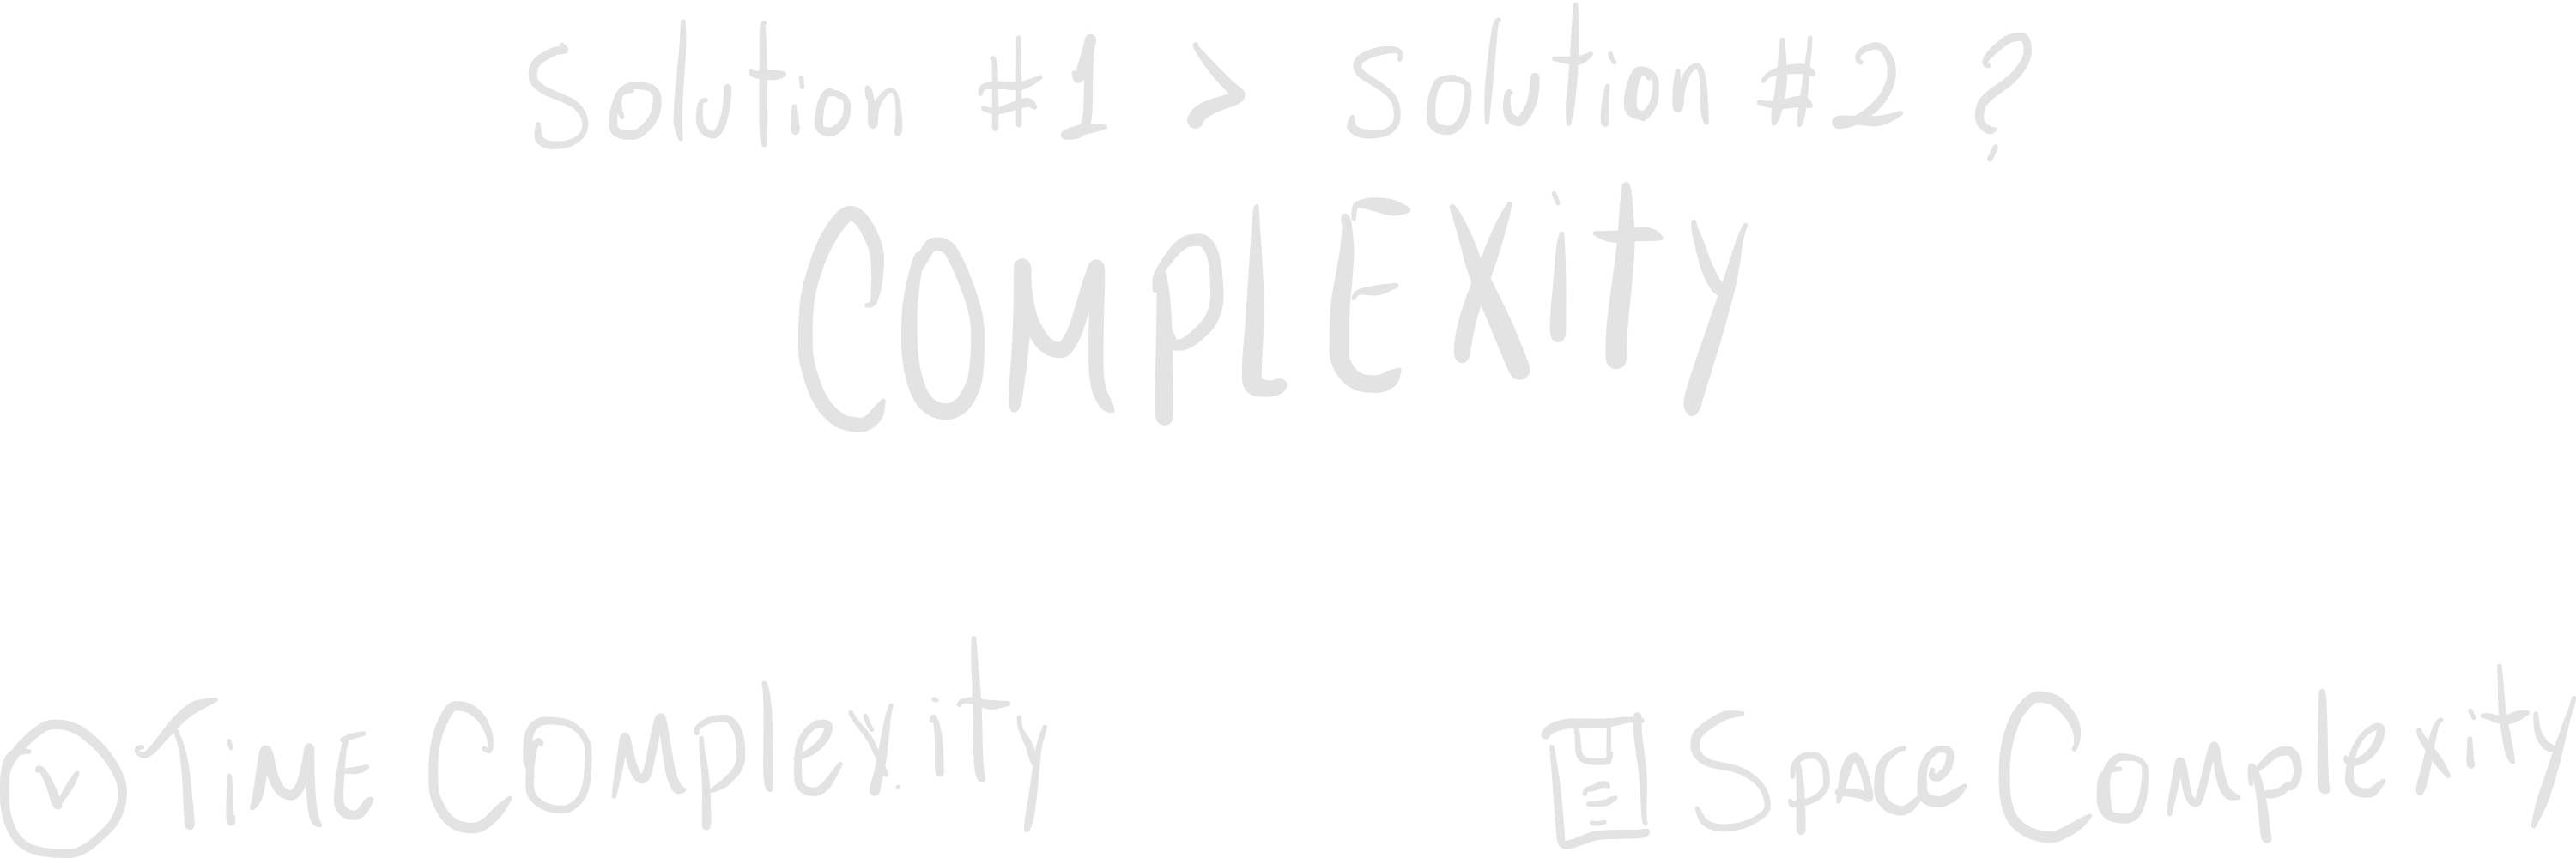 Solution #1 > Solution #2 ?
COMPLEXity
TiME COMplexity
Space Complexity